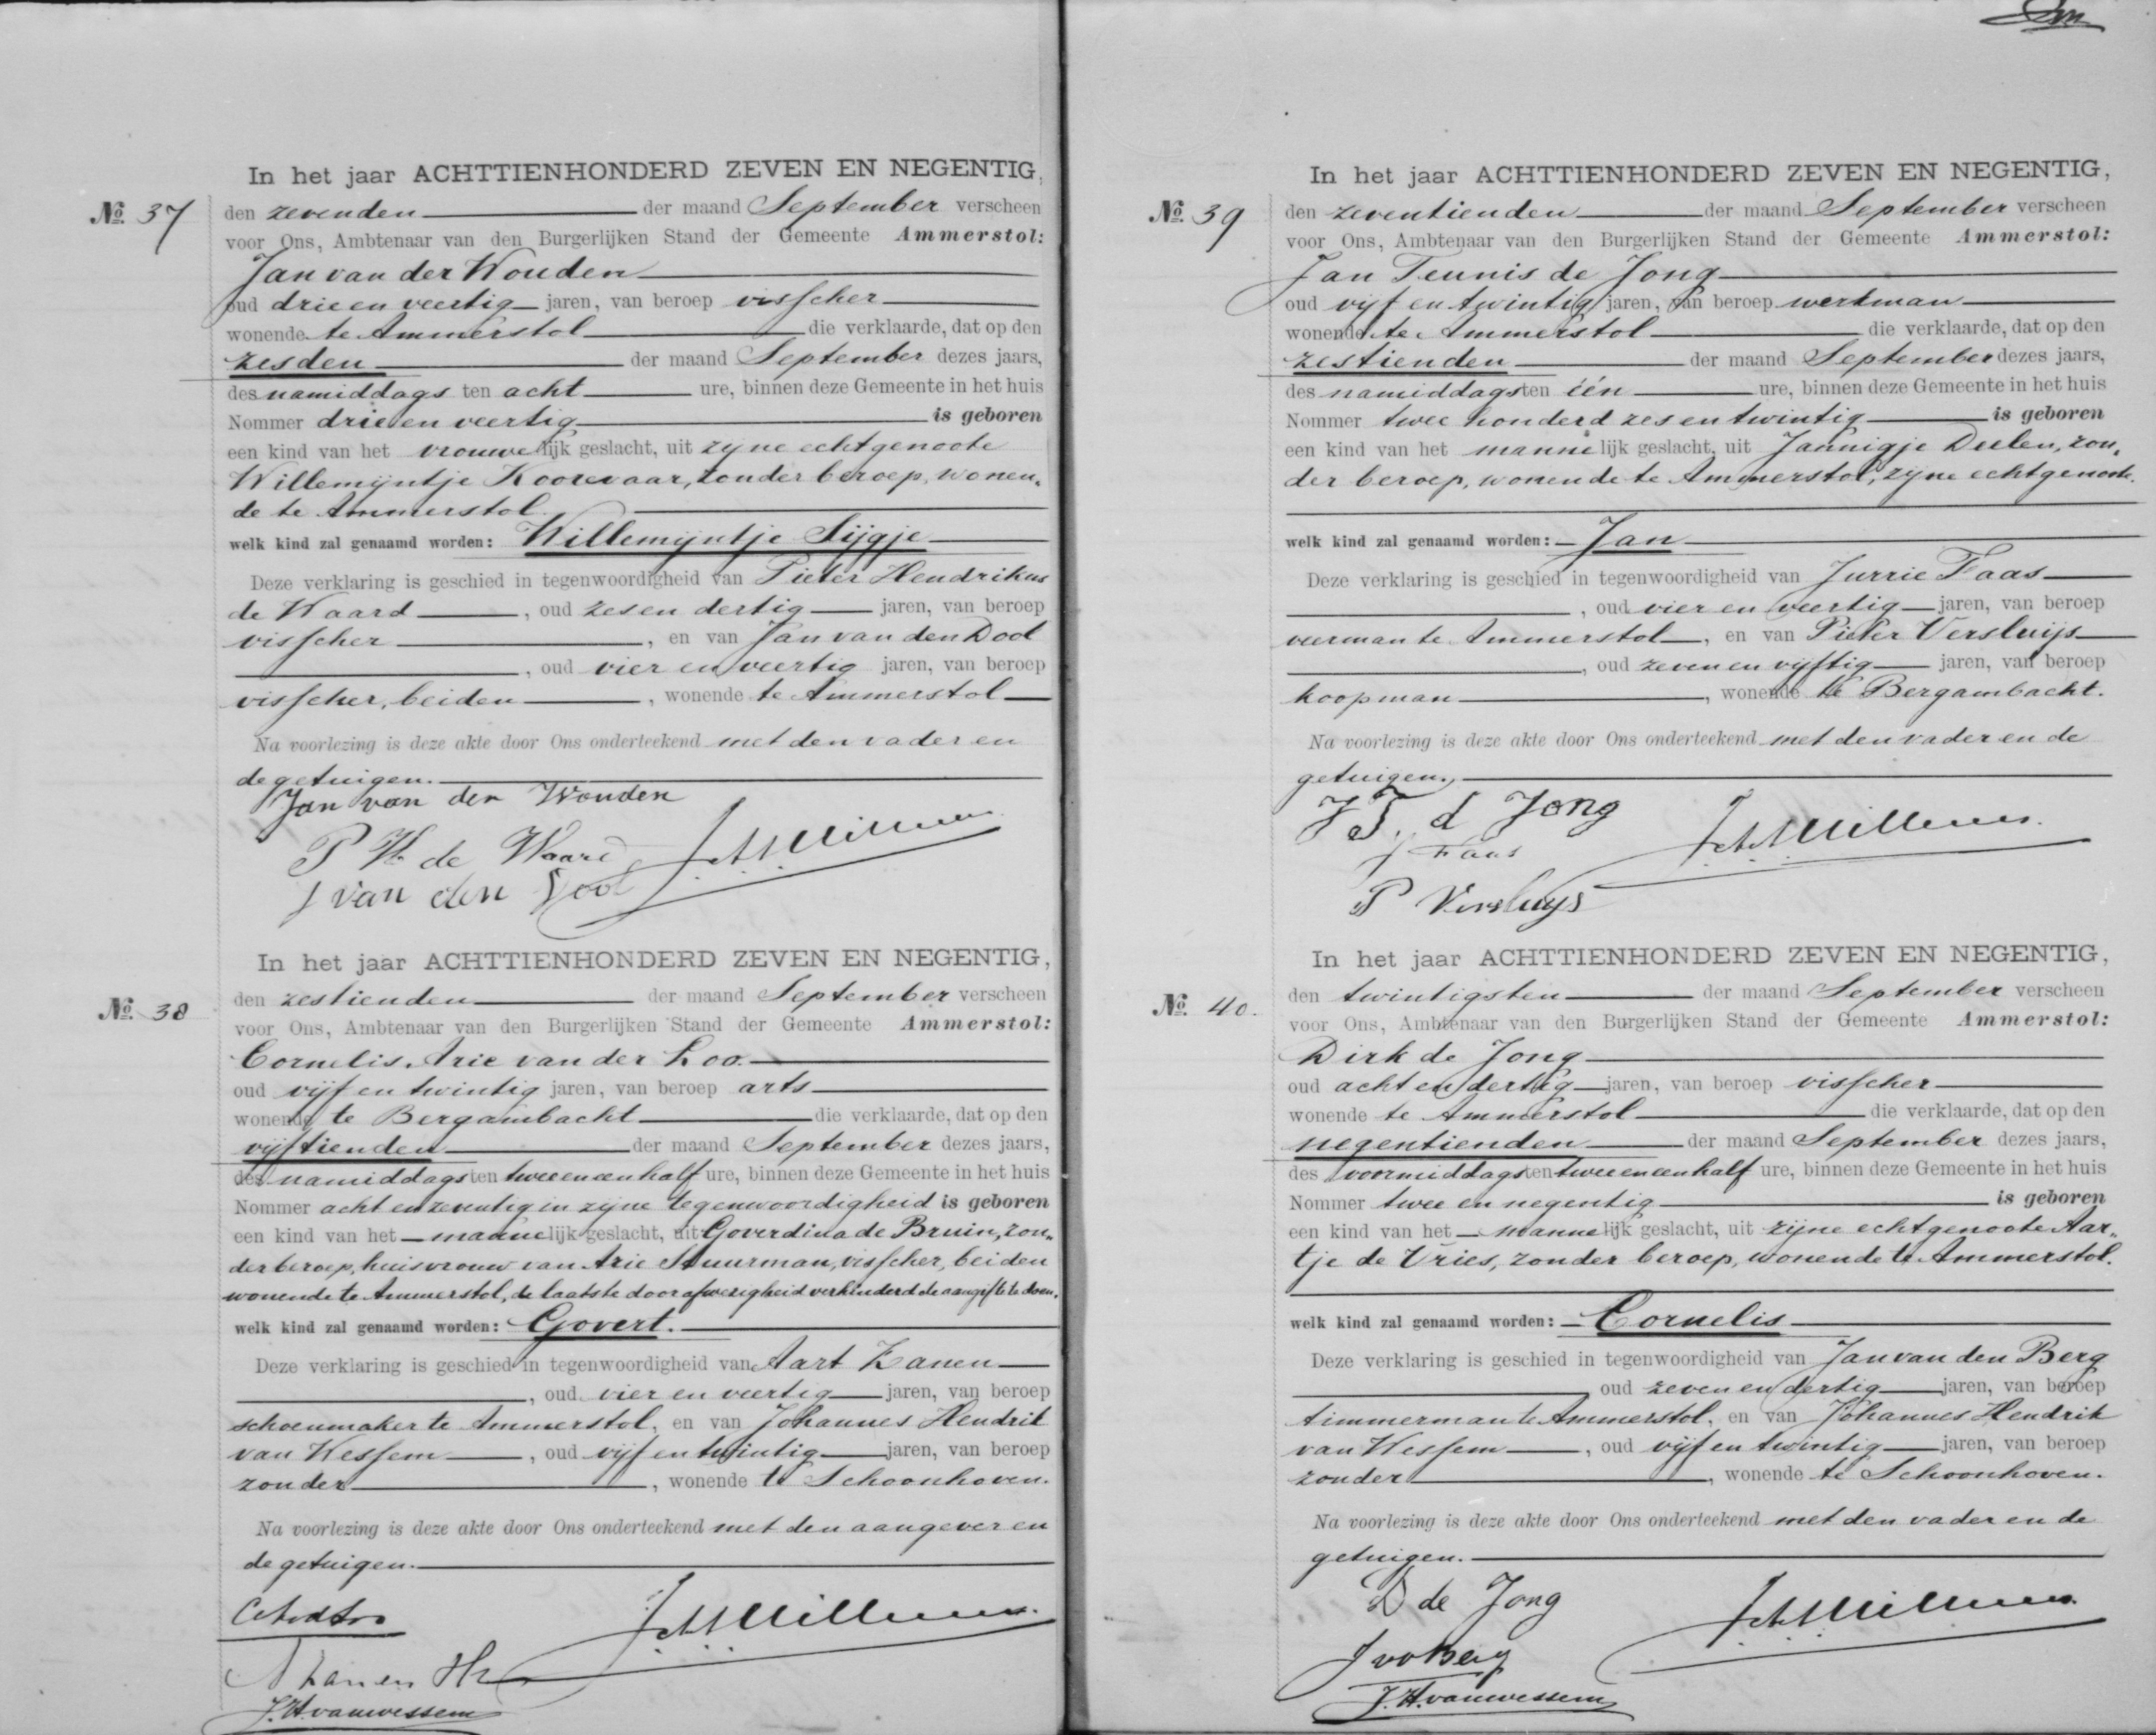 Nº 37
In het jaar ACHTTIENHONDERD ZEVEN EN NEGENTIG,
den zevenden der maand September verscheen
voor Ons, Ambtenaar van den Burgerlijken Stand der Gemeente Ammerstol:
Jan van der Wouden
oud drie en veertig jaren, van beroep visscher
wonende te Ammerstol die verklaarde, dat op den
zesden der maand September dezes jaars,
des namiddags ten acht ure, binnen deze Gemeente in het huis
Nommer drie en veertig is geboren
een kind van het vrouwelijk geslacht, uit zijne echtgenoote
Willemijntje Koorevaar, zonder beroep, wonen„
de te Ammerstol.
welk kind zal genaamd worden: Willemijntje Sijgje
Deze verklaring is geschied in tegenwoordigheid van Pieter Hendrikus
de Waard, oud zes en dertig jaren, van beroep
visscher, en van Jan van den Dool
, oud vier en veertig jaren, van beroep
visscher, beiden, wonende te Ammerstol
Na voorlezing is deze akte door Ons onderteekend met den vader en
de getuigen.
Jan van der Wouden
P H de Waard
J van den Dool
Nº 38
In het jaar ACHTTIENHONDERD ZEVEN EN NEGENTIG,
den zestienden der maand September verscheen
voor Ons, Ambtenaar van den Burgerlijken Stand der Gemeente Ammerstol:
Cornelis Arie van der Loo.
oud vijf en twintig jaren, van beroep arts
wonende te Bergambacht die verklaarde, dat op den
vijftienden der maand September dezes jaars,
des namiddags ten twee en een half ure, binnen deze Gemeente in het huis
Nommer acht en zeventig in zijne tegenwoordigheid is geboren
een kind van het mannelijk geslacht, uit Goverdina de Bruin, zon„
der beroep, huisvrouw van Arie Stuurman, visscher, beiden
wonende te Ammerstol, de laatste door afwezigheid verhinderd de aangifte te doen.
welk kind zal genaamd worden: Govert.
Deze verklaring is geschied in tegenwoordigheid van Aart Zanen
, oud vier en veertig jaren, van beroep
schoenmaker te Ammerstol, en van Johannes Hendrik
van Wessem, oud vijf en twintig jaren, van beroep
zonder, wonende te Schoonhoven.
Na voorlezing is deze akte door Ons onderteekend met den aangever en
de getuigen.
A Zanen Hz
J.H. van Wessem
Nº 39
In het jaar ACHTTIENHONDERD ZEVEN EN NEGENTIG,
den zeventienden der maand September verscheen
voor Ons, Ambtenaar van den Burgerlijken Stand der Gemeente Ammerstol:
Jan Teunis de Jong
oud vijf en twintig jaren, van beroep werkman
wonende te Ammerstol die verklaarde, dat op den
zestienden der maand September dezes jaars,
des namiddags ten één ure, binnen deze Gemeente in het huis
Nommer twee honderd zes en twintig is geboren
een kind van het mannelijk geslacht, uit Jannigje Deelen, zon„
der beroep, wonende te Ammerstol, zijne echtgenoote.
welk kind zal genaamd worden: Jan
Deze verklaring is geschied in tegenwoordigheid van Jurrie Faas
, oud vier en veertig jaren, van beroep
veerman te Ammerstol, en van Pieter Versluijs
, oud zeven en vijftig jaren, van beroep
koopman, wonende te Bergambacht.
Na voorlezing is deze akte door Ons onderteekend met den vader en de
getuigen.
J T. d Jong
J Faas
P Versluys
Nº 40.
In het jaar ACHTTIENHONDERD ZEVEN EN NEGENTIG,
den twintigsten der maand September verscheen
voor Ons, Ambtenaar van den Burgerlijken Stand der Gemeente Ammerstol:
Dirk de Jong
oud acht en dertig jaren, van beroep visscher
wonende te Ammerstol die verklaarde, dat op den
negentienden der maand September dezes jaars,
des voormiddags ten twee en een half ure, binnen deze Gemeente in het huis
Nommer twee en negentig is geboren
een kind van het mannelijk geslacht, uit zijne echtgenoote Aar„
tje de Vries, zonder beroep, wonende te Ammerstol.
welk kind zal genaamd worden: Cornelis
Deze verklaring is geschied in tegenwoordigheid van Jan van den Berg
oud zeven en dertig jaren, van beroep
timmerman te Ammerstol, en van Johannes Hendrik
van Wessem, oud vijf en twintig jaren, van beroep
zonder, wonende te Schoonhoven.
Na voorlezing is deze akte door Ons onderteekend met den vader en de
getuigen.
D de Jong
J vd Berg
J.H. van Wessem